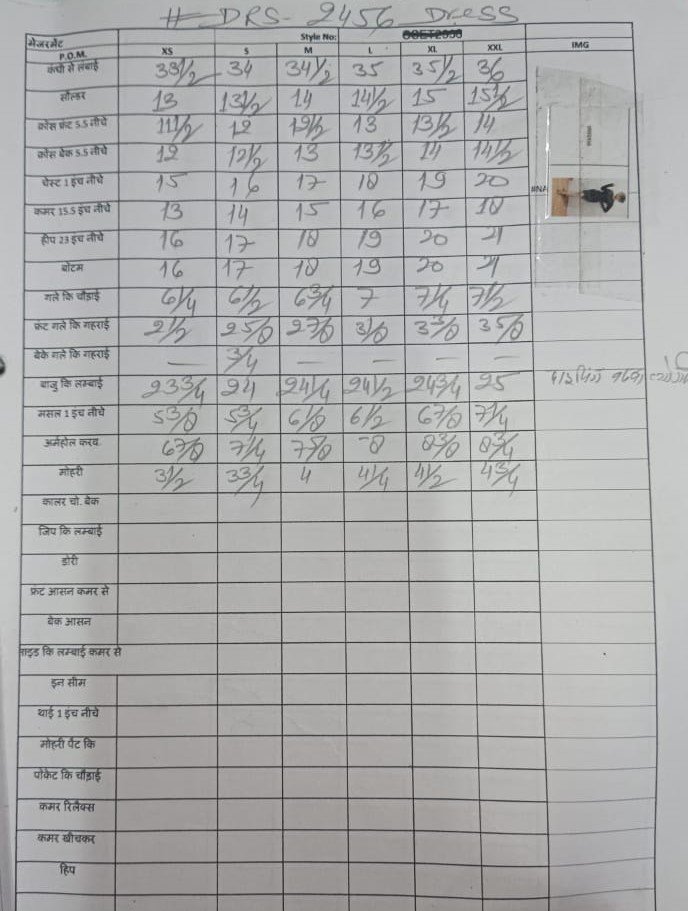 # DRS-2456 Dress
मेजरमेंट Style No:
P.O.M. XS S M L XL XXL IMG
कंधी से लंबाई 33 1/2 34 34 1/2 35 35 1/2 36
सोल्डर 13 13 1/2 14 14 1/2 15 15 1/2
क्रोस फ्रंट 5.5 नीचे 11 1/2 12 12 1/2 13 13 1/2 14
क्रोस बेक 5.5 नीचे 12 12 1/2 13 13 1/2 14 14 1/2
चेस्ट 1 इंच नीचे 15 16 17 18 19 20
कमर 15.5 इंच नीचे 13 14 15 16 17 18
हीप 23 इंच नीचे 16 17 18 19 20 21
बोटम 16 17 18 19 20 21
गले कि चौड़ाई 6 1/4 6 1/2 6 3/4 7 7 1/4 7 1/2
फ्रंट गले कि गहराई 2 1/2 2 5/8 2 7/8 3 1/8 3 3/8 3 5/8
बेक गले कि गहराई — 3/4 — — — —
बाजु कि लम्बाई 23 3/4 24 24 1/4 24 1/2 24 3/4 25
मसल 1 इंच नीचे 5 3/8 5 3/4 6 1/8 6 1/2 6 7/8 7 1/4
अर्महोल करव 6 7/8 7 1/4 7 5/8 8 8 3/8 8 3/4
मोहरी 3 1/2 3 3/4 4 4 1/4 4 1/2 4 3/4
कालर चो. बेक
जिप कि लम्बाई
डोरी
फ्रंट आसन कमर से
बेक आसन
साइड कि लम्बाई कमर से
इन सीम
थाई 1 इंच नीचे
मोहरी पैंट कि
पोकेट कि चौड़ाई
कमर रिलैक्स
कमर खीचकर
हिप